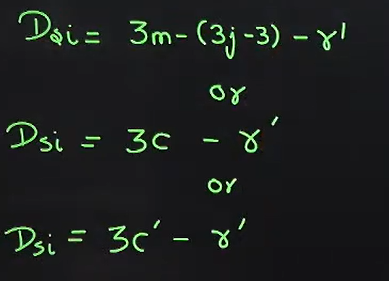 Dsi = 3m-(3j-3) - r'
or
Dsi = 3c - r'
or
Dsi = 3c' - r'